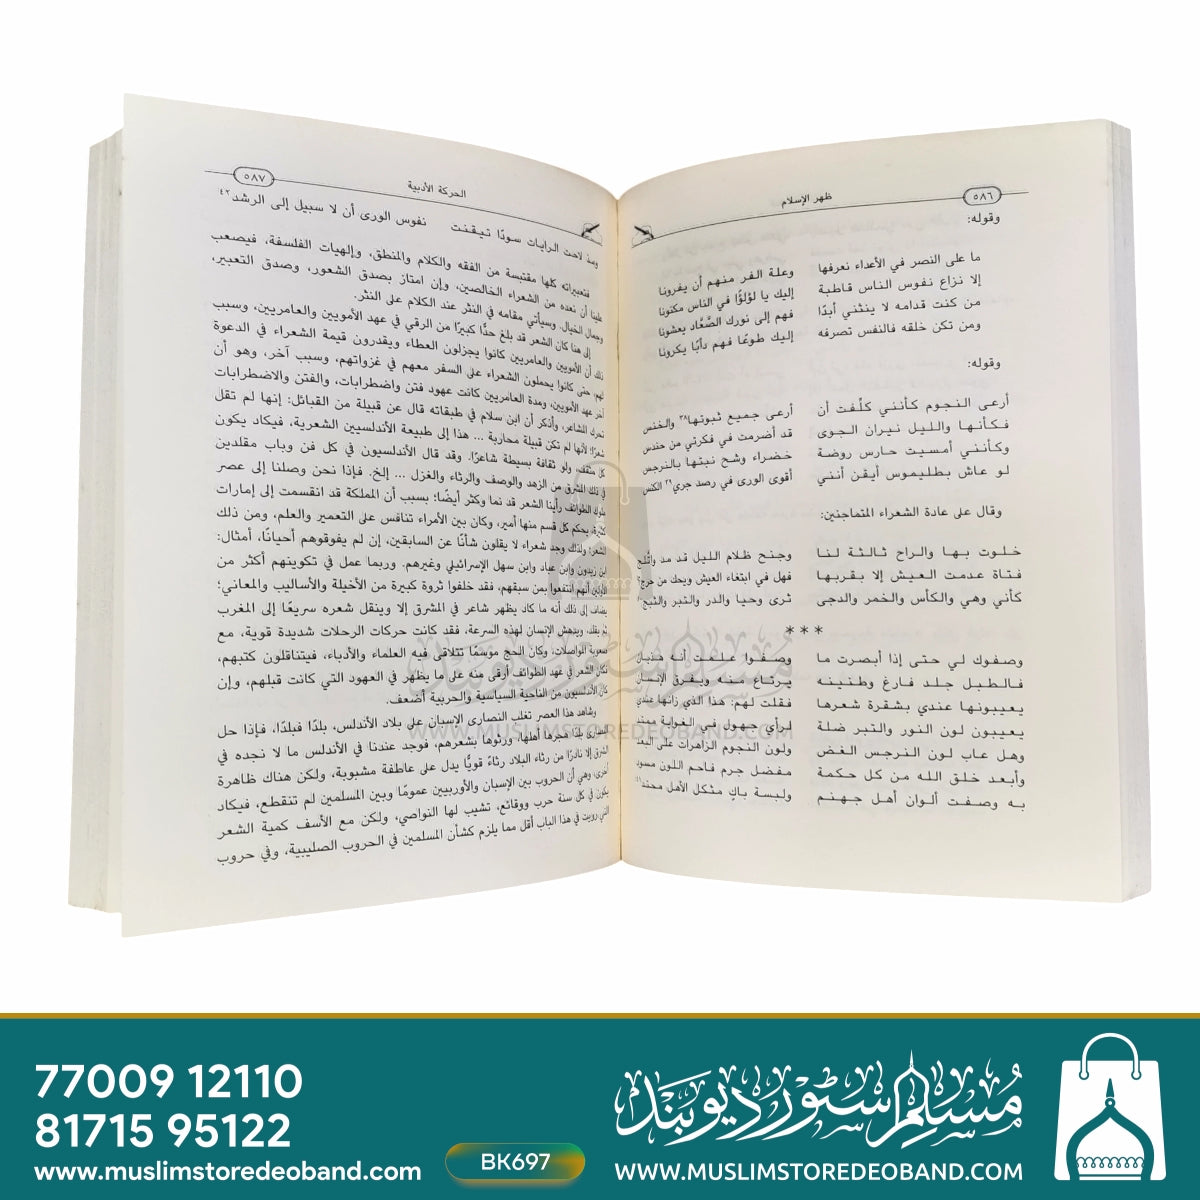 ٥٨٦
ظهر الإسلام
وقوله:
ما على النصر في الأعداء نعرفها وعلة الفر منهم أن يفرونا
إلا نزاع نفوس الناس قاطبة إليك يا لؤلؤًا في الناس مكنونا
من كنت قدامه لا ينثني أبدًا فهم إلى نورك الصَّعَّاد يعشونا
ومن تكن خلفه فالنفس تصرفه إليك طوعًا فهم دأبًا يكرونا
وقوله:
أرعى النجوم كأنني كلِّفت أن أرعى جميع ثبوتها٣٨ والخنس
فكأنها والليل نيران الجوى قد أضرمت في فكرتي من حندس
وكأنني أمسيت حارس روضة خضراء وشح نبتها بالنرجس
لو عاش بطليموس أيقن أنني أقوى الورى في رصد جري٣٩ الكنس
وقال على عادة الشعراء المتماجنين:
خلوت بها والراح ثالثة لنا وجنح ظلام الليل قد مد واتَّلج
فتاة عدمت العيش إلا بقربها فهل في ابتغاء العيش ويحك من حرج؟
كأني وهي والكأس والخمر والدجى ثرى وحيا والدر والتبر والثبج
***
وصفوك لي حتى إذا أبصرت ما وصفوا علمت أنه هذيان
فالطبل جلد فارغ وطنينه يرتاع منه ويفرق الإنسان
يعيبونها عندي بشقرة شعرها فقلت لهم: هذا الذي زانها عندي
يعيبون لون النور والتبر ضلة لرأي جهول في الغواية ممتد
وهل عاب لون النرجس الغض ولون النجوم الزاهرات على البعد
وأبعد خلق الله من كل حكمة مفضل جرم فاحم اللون مسود
به وصفت ألوان أهل جهنم ولبسة باكٍ مثكل الأهل محتد
٥٨٧
الحركة الأدبية
ومذ لاحت الرايات سودًا تيقنت نفوس الورى أن لا سبيل إلى الرشد٤٢
فتعبيراته كلها مقتبسة من الفقه والكلام والمنطق، وإلهيات الفلسفة، فيصعب
علينا أن نعده من الشعراء الخالصين، وإن امتاز بصدق الشعور، وصدق التعبير،
وجمال الخيال. وسيأتي مقامه في النثر عند الكلام على النثر.
إلى هنا كان الشعر قد بلغ حدًّا كبيرًا من الرقي في عهد الأمويين والعامريين، وسبب
ذلك أن الأمويين والعامريين كانوا يجزلون العطاء ويقدرون قيمة الشعراء في الدعوة
لهم، حتى كانوا يحملون الشعراء على السفر معهم في غزواتهم، وسبب آخر، وهو أن
آخر عهد الأمويين، ومدة العامريين كانت عهود فتن واضطرابات، والفتن والاضطرابات
تحرك المشاعر، وأذكر أن ابن سلام في طبقاته قال عن قبيلة من القبائل: إنها لم تقل
شعرًا؛ لأنها لم تكن قبيلة محاربة ... هذا إلى طبيعة الأندلسيين الشعرية، فيكاد يكون
كل مثقف، ولو ثقافة بسيطة شاعرًا. وقد قال الأندلسيون في كل فن وباب مقلدين
في ذلك المشرق من الزهد والوصف والرثاء والغزل ... إلخ. فإذا نحن وصلنا إلى عصر
ملوك الطوائف رأينا الشعر قد نما وكثر أيضًا؛ بسبب أن المملكة قد انقسمت إلى إمارات
كثيرة، يحكم كل قسم منها أمير، وكان بين الأمراء تنافس على التعمير والعلم، ومن ذلك
الشعر؛ ولذلك وجد شعراء لا يقلون شأنًا عن السابقين، إن لم يفوقوهم أحيانًا، أمثال:
ابن زيدون وابن عباد وابن سهل الإسرائيلي وغيرهم. وربما عمل في تكوينهم أكثر من
الأولين أنهم انتفعوا بمن سبقهم، فقد خلفوا ثروة كبيرة من الأخيلة والأساليب والمعاني؛
يضاف إلى ذلك أنه ما كاد يظهر شاعر في المشرق إلا وينقل شعره سريعًا إلى المغرب
ويدهش الإنسان لهذه السرعة، فقد كانت حركات الرحلات شديدة قوية، مع
صعوبة المواصلات، وكان الحج موسمًا تتلاقى فيه العلماء والأدباء، فيتناقلون كتبهم،
فكان الشعر في عهد الطوائف أرقى منه على ما يظهر في العهود التي كانت قبلهم، وإن
كان الأندلسيون من الناحية السياسية والحربية أضعف.
وشاهد هذا العصر تغلب النصارى الإسبان على بلاد الأندلس، بلدًا فبلدًا، فإذا حل
النصارى بلدًا هجرها أهلها، ورثوها بشعرهم، فوجد عندنا في الأندلس ما لا نجده في
الشرق إلا نادرًا من رثاء البلاد رثاءً قويًّا يدل على عاطفة مشبوبة، ولكن هناك ظاهرة
أخرى، وهي أن الحروب بين الإسبان والأوربيين عمومًا وبين المسلمين لم تنقطع، فيكاد
يكون في كل سنة حرب ووقائع، تشيب لها النواصي، ولكن مع الأسف كمية الشعر
التي رويت في هذا الباب أقل مما يلزم كشأن المسلمين في الحروب الصليبية، وفي حروب
مسلم ستور ديوبند
WWW.MUSLIMSTOREDEOBAND.COM
77009 12110
81715 95122
www.muslimstoredeoband.com
BK697
مسلم سٹور دیوبند
www.MUSLIMSTOREDEOBAND.COM